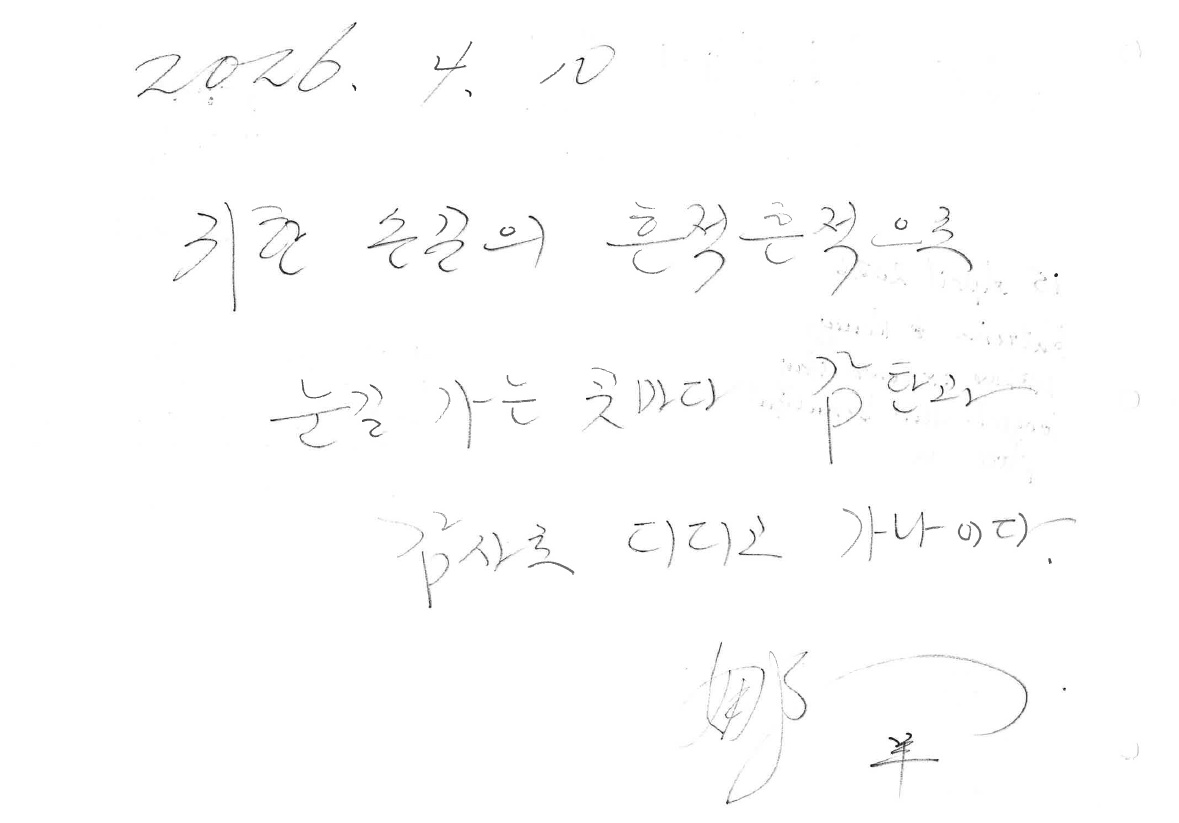 2026. 4. 10
귀한 손끝의 흔적흔적으로
눈길 가는 곳마다 감탄과
감사로 디디고 가나이다.